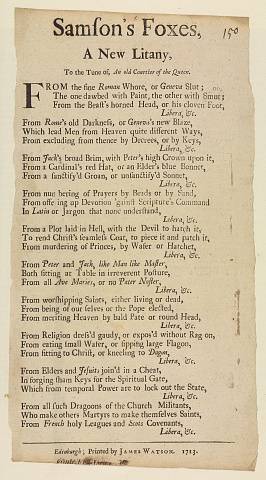 150
Samson's Foxes,
A New Litany,
To the Tune of, An old Courtier of the Queen.
FROM the fine Roman Whore, or Geneva Slut;
The one dawbed with Paint, the other with Smut;
From the Beast's horned Head, or his cloven Foot,
Libera, &c.
From Rome's old Darkness, or Geneva's new Blaze,
Which lead Men from Heaven quite different Ways,
From excluding from thence by Decrees, or by Keys,
Libera, &c.
From Jack's broad Brim, with Peter's high Crown upon it,
From a Cardinal's red Hat, or an Elder's blue Bonnet,
From a sanctify'd Groan, or unsanctify'd Sonnet,
Libera, &c.
From numbering of Prayers by Beads or by Sand,
From offering up Devotion 'gainst Scripture's Command
In Latin or Jargon that none understand,
Libera, &c.
From a Plot laid in Hell, with the Devil to hatch it,
To rend Christ's seamless Coat, to piece it and patch it,
From murdering of Princes, by Water or Hatchet,
Libera, &c.
From Peter and Jack, like Man like Master,
Both sitting at Table in irreverent Posture,
From all Ave Maries, or no Pater Noster,
Libera, &c.
From worshipping Saints, either living or dead,
From being of our selves or the Pope elected,
From meriting Heaven by bald Pate or round Head,
Libera, &c.
From Religion dress'd gaudy, or expos'd without Rag on,
From eating small Water, or sipping large Flagon,
From sitting to Christ, or kneeling to Dagon,
Libera, &c.
From Elders and Jesuits join'd in a Cheat,
In forging sham Keys for the Spiritual Gate,
Which from temporal Power are to lock out the State,
Libera, &c.
From all such Dragoons of the Church Militants,
Who make others Martyrs to make themselves Saints,
From French holy Leagues and Scots Covenants,
Libera, &c.
Edinburgh; Printed by JAMES WATSON. 1713.